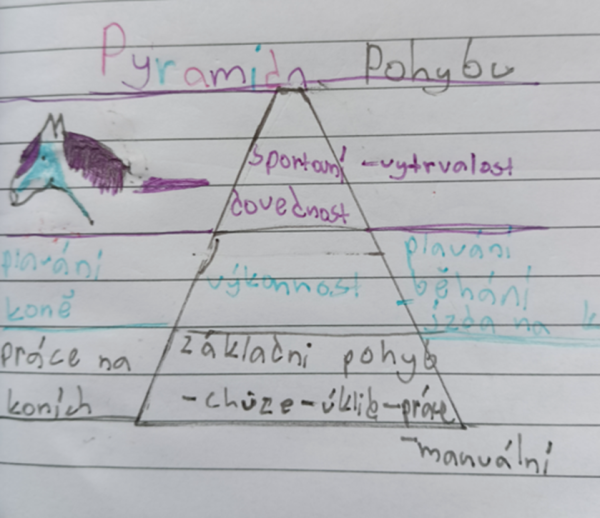 Pyramida Pohybu
spontaní - vytrvalost
dovednost
plavání
koně
výkonnost
plavání
- běhání
jízda na k
práce na
koních
základní pohyb
- chůze - úklid - práce
- manuální